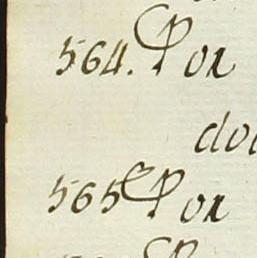 564. Por
do
565 Por